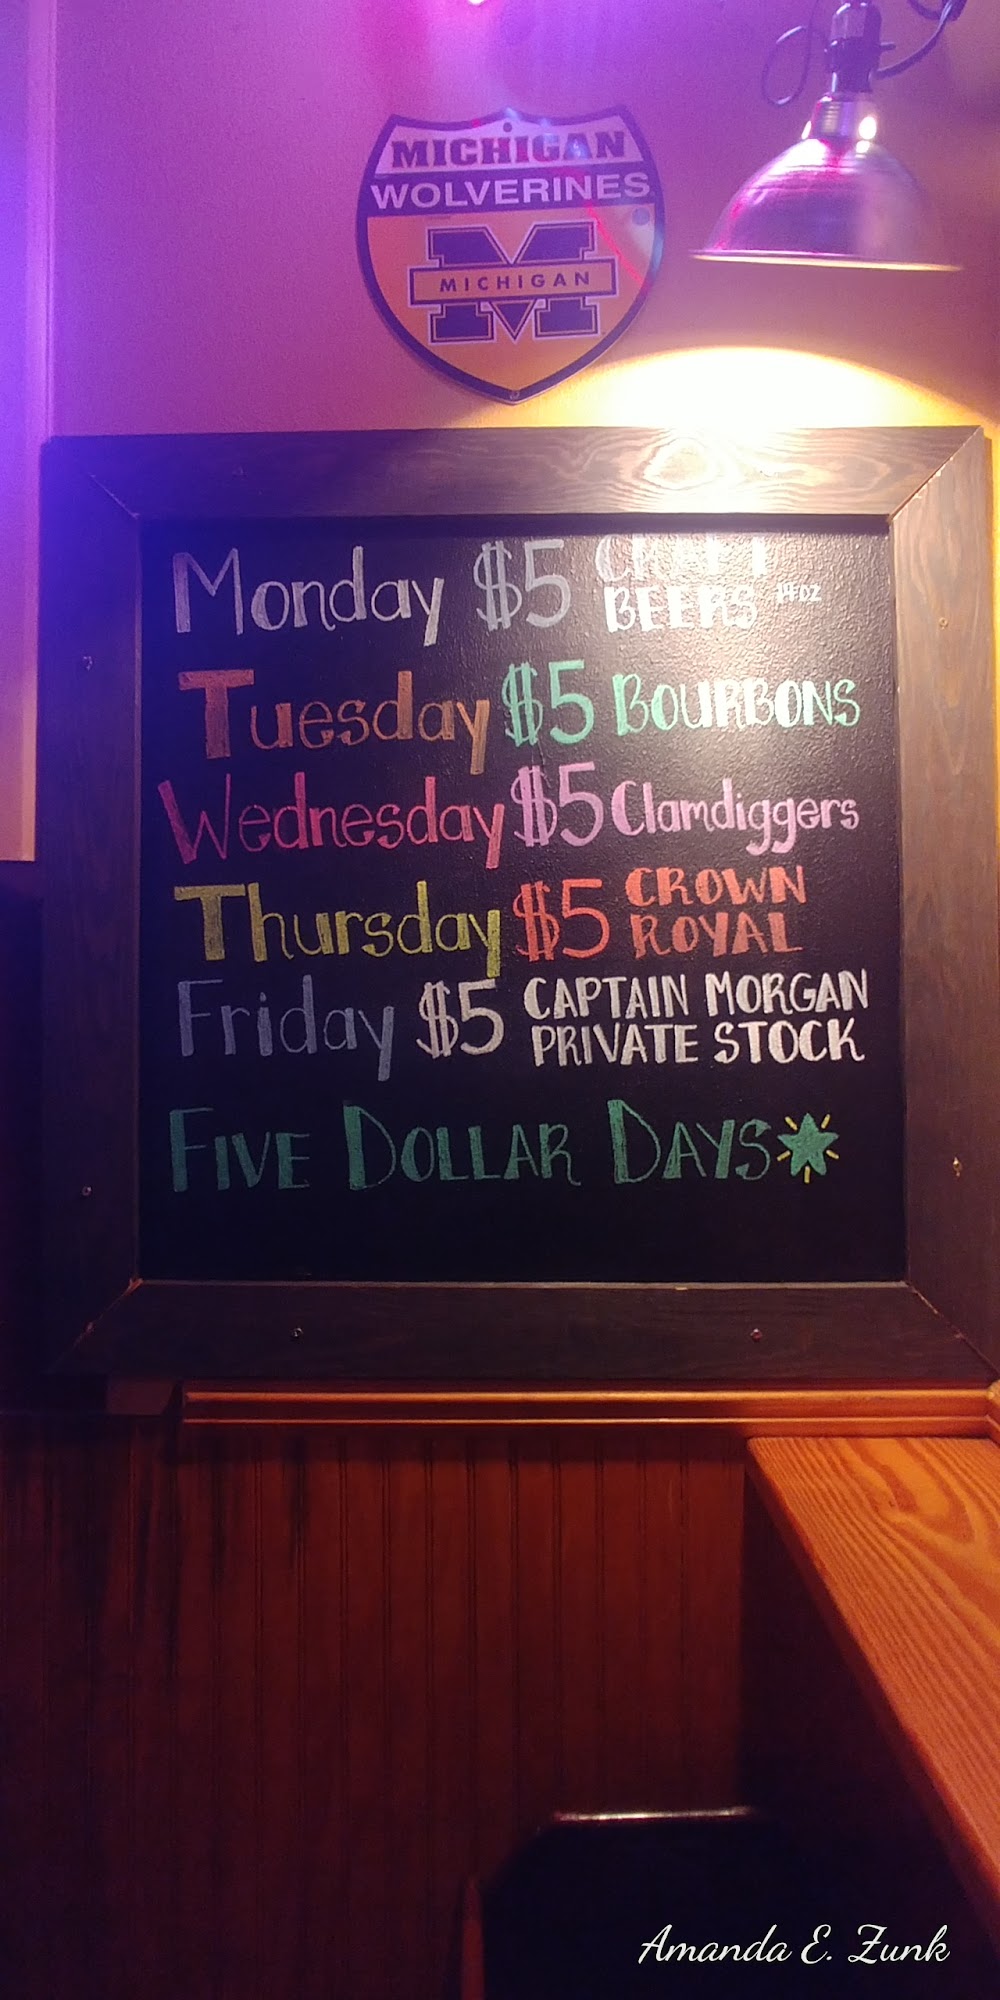 MICHIGAN
WOLVERINES
M
MICHIGAN
Monday $5 CRAFT
BEERS 14oz
Tuesday $5 BOURBONS
Wednesday $5 Clamdiggers
Thursday $5 CROWN
ROYAL
Friday $5 CAPTAIN MORGAN
PRIVATE STOCK
FIVE DOLLAR DAYS
Amanda E. Zunk